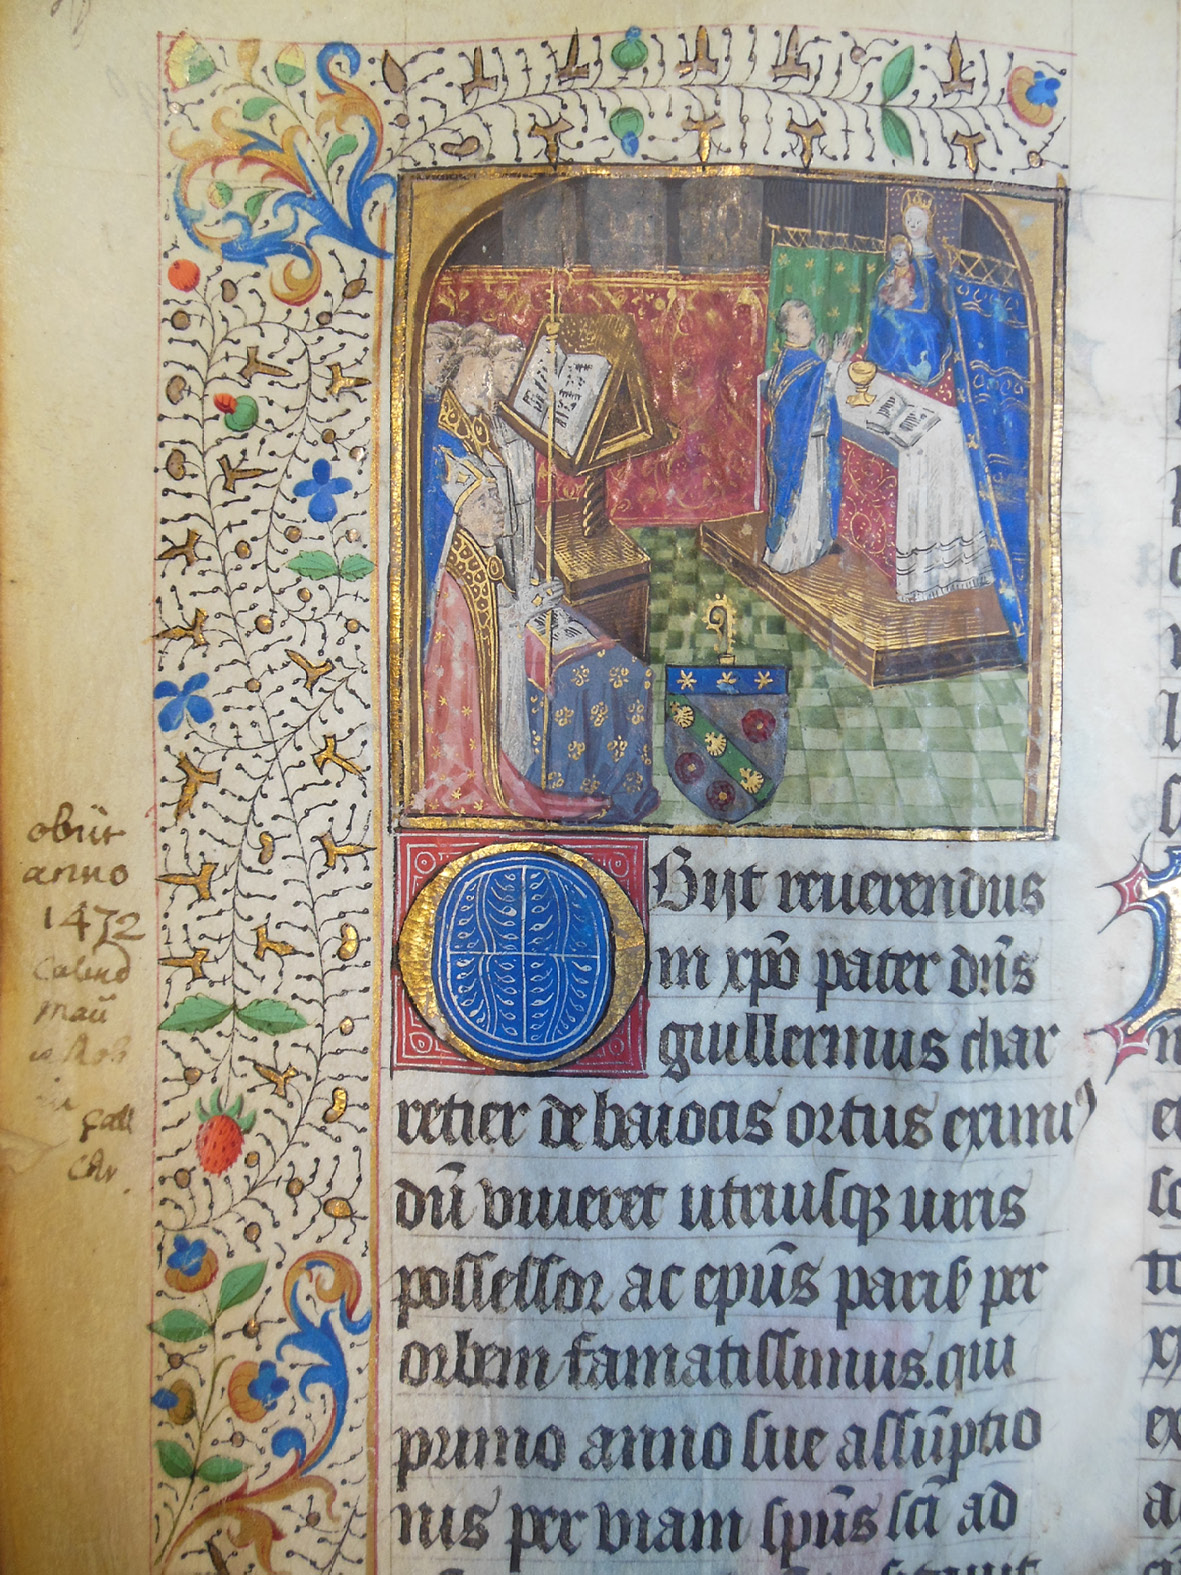 obiit
anno
1472
Calend
Maii
Gall
Chr.
OBiit reuerendus
in xpō pater dn̄s
guillermus char
retier de baiocis ortus eximiꝰ
dū viueret utriusqꝫ iuris
possessor ac epūs parisꝭ per
orbem famatissimus. qui
primo anno sue assūptio
nis per viam sp̄us sc̄i ad